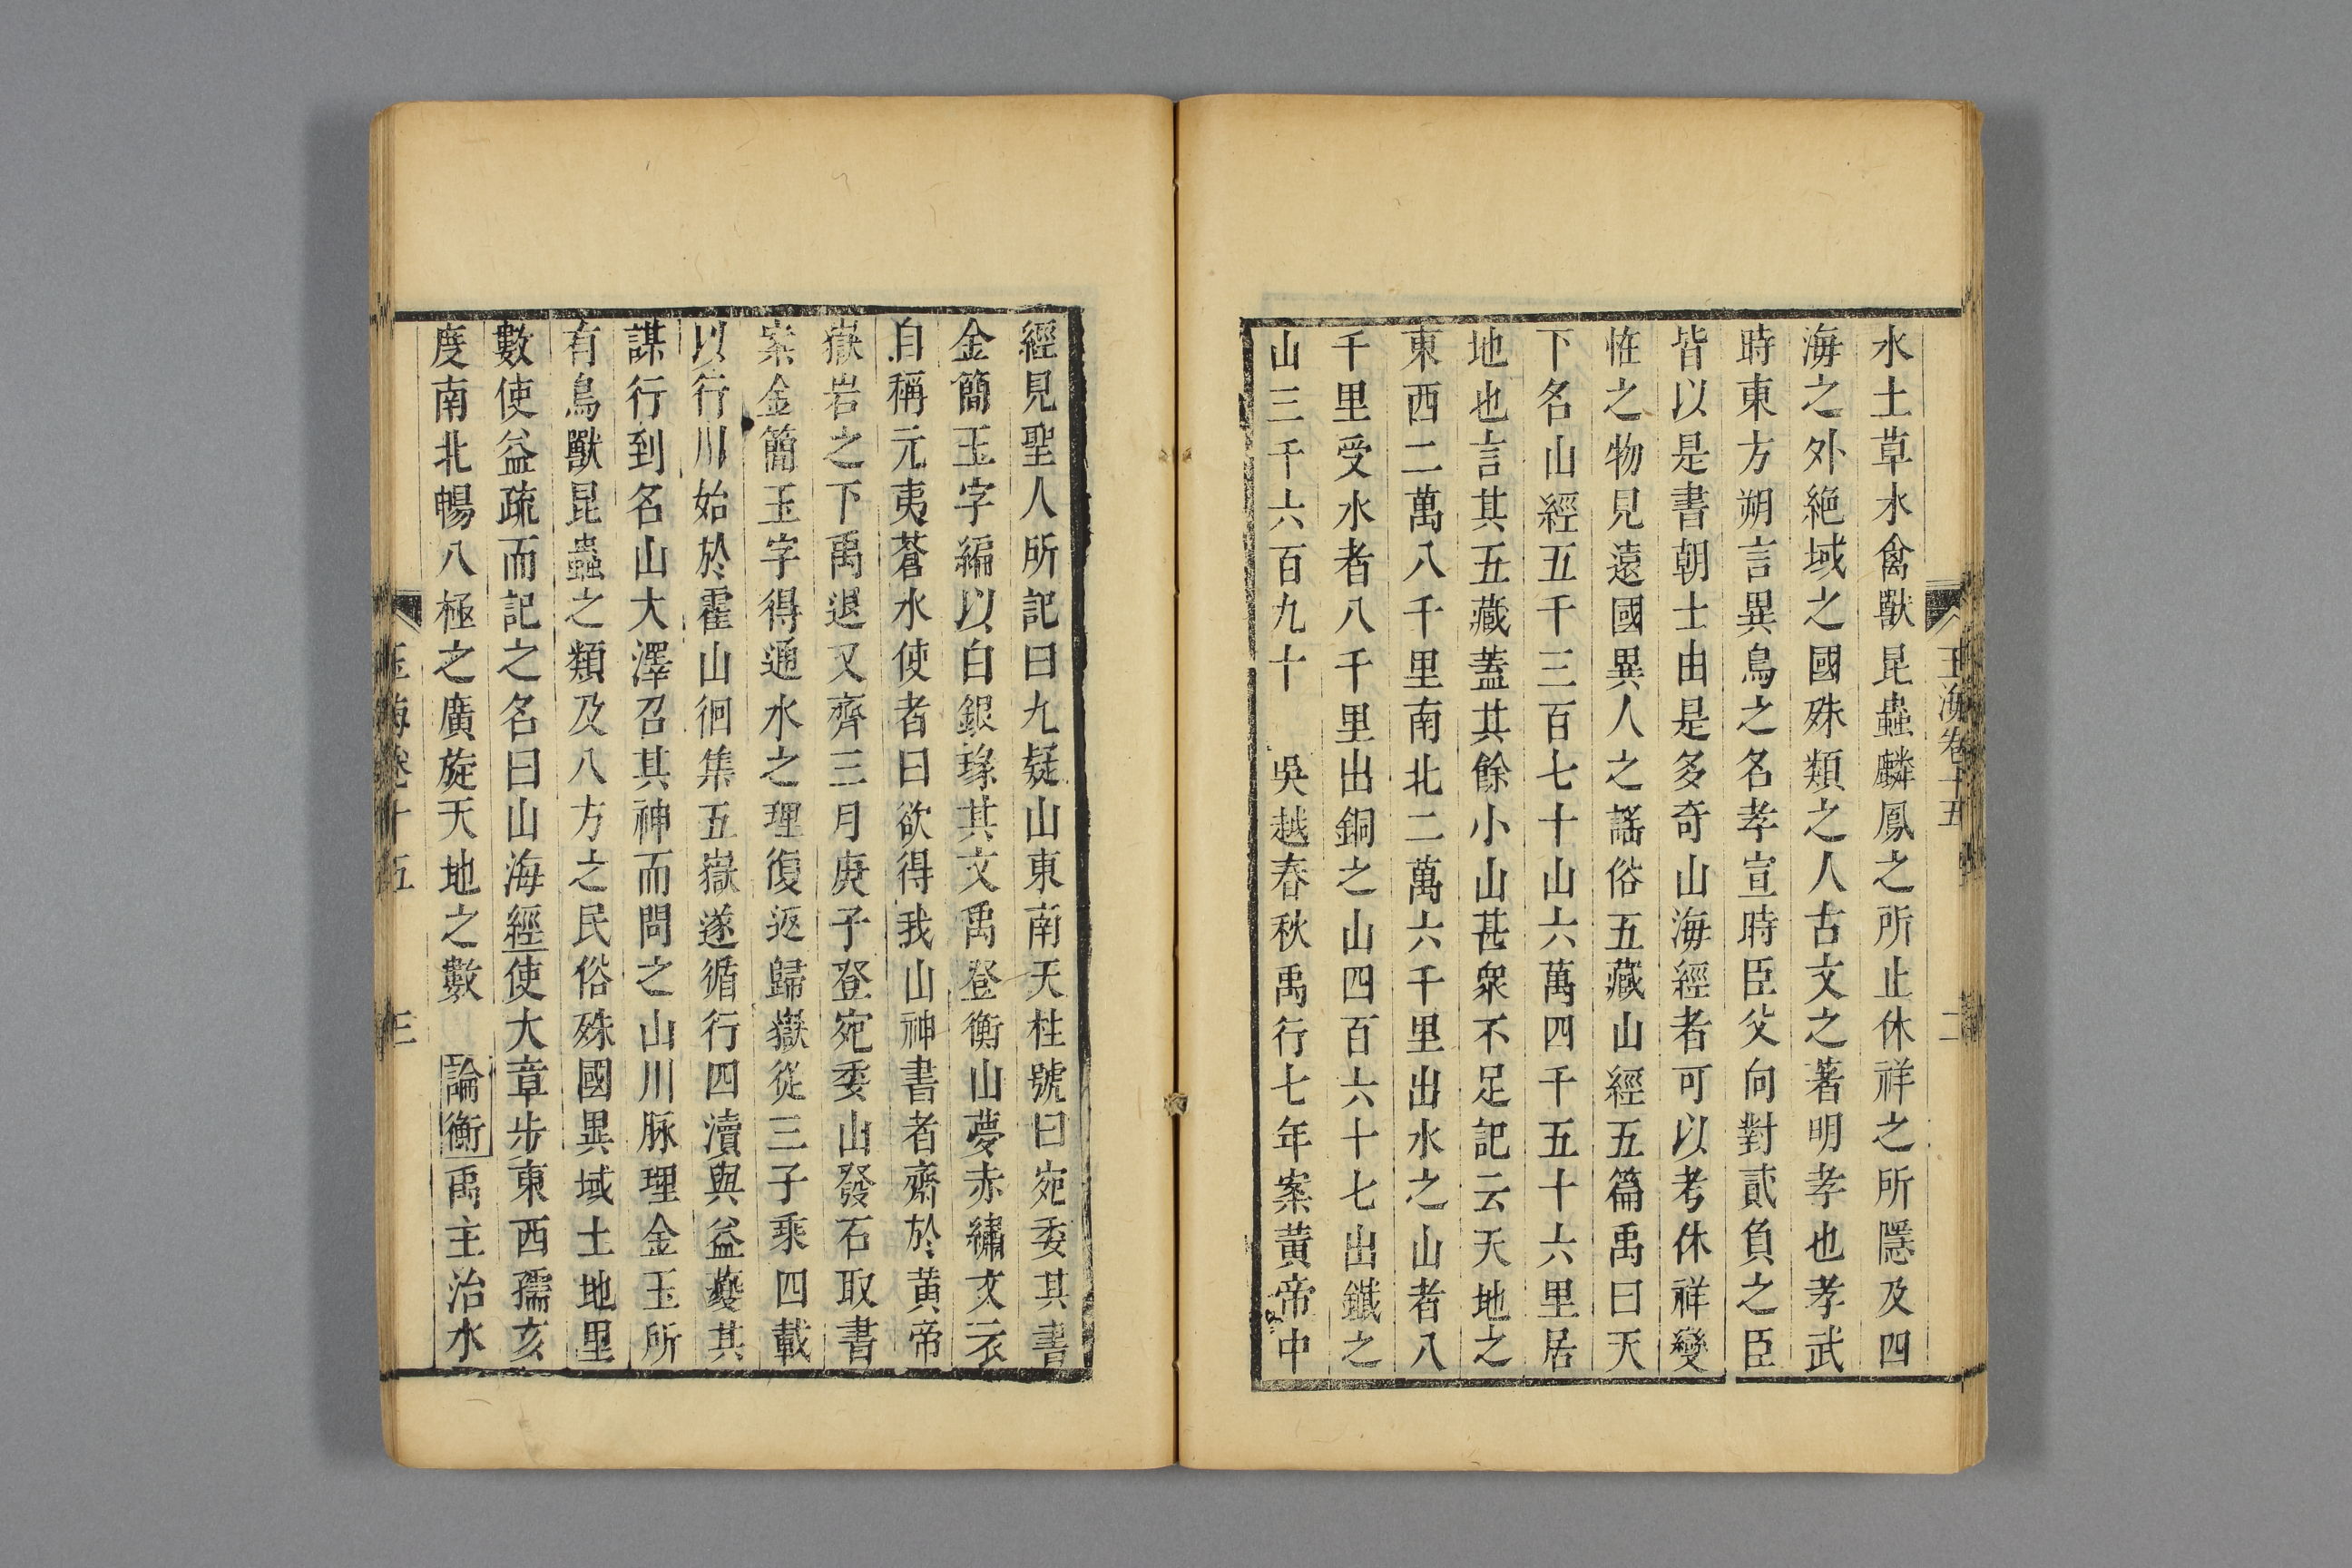 玉海卷十五 二
水土草水禽獸昆蟲麟鳳之所止休祥之所隱及四
海之外絶域之國殊類之人古文之著明孝也孝武
時東方朔言異鳥之名孝宣時臣父向對貳負之臣
皆以是書朝士由是多奇山海經者可以考休祥變
恠之物見遠國異人之謡俗五藏山經五篇禹曰天
下名山經五千三百七十山六萬四千五十六里居
地也言其五藏蓋其餘小山甚衆不足記云天地之
東西二萬八千里南北二萬六千里出水之山者八
千里受水者八千里出銅之山四百六十七出鐵之
山三千六百九十 吳越春秋禹行七年案黄帝中
經見聖人所記曰九疑山東南天柱號曰宛委其書
金簡玉字編以白銀瑑其文禹登衡山夢赤繡文衣
自稱元夷蒼水使者曰欲得我山神書者齋於黄帝
嶽岩之下禹退又齊三月庚子登宛委山發石取書
案金簡玉字得通水之理復返歸嶽從三子乘四載
以行川始於霍山徊集五嶽遂循行四瀆與益夔其
謀行到名山大澤召其神而問之山川脉理金玉所
有鳥獸昆蟲之類及八方之民俗殊國異域土地里
數使益疏而記之名曰山海經使大章步東西孺亥
度南北暢八極之廣旋天地之數 論衡禹主治水
玉海卷十五 三